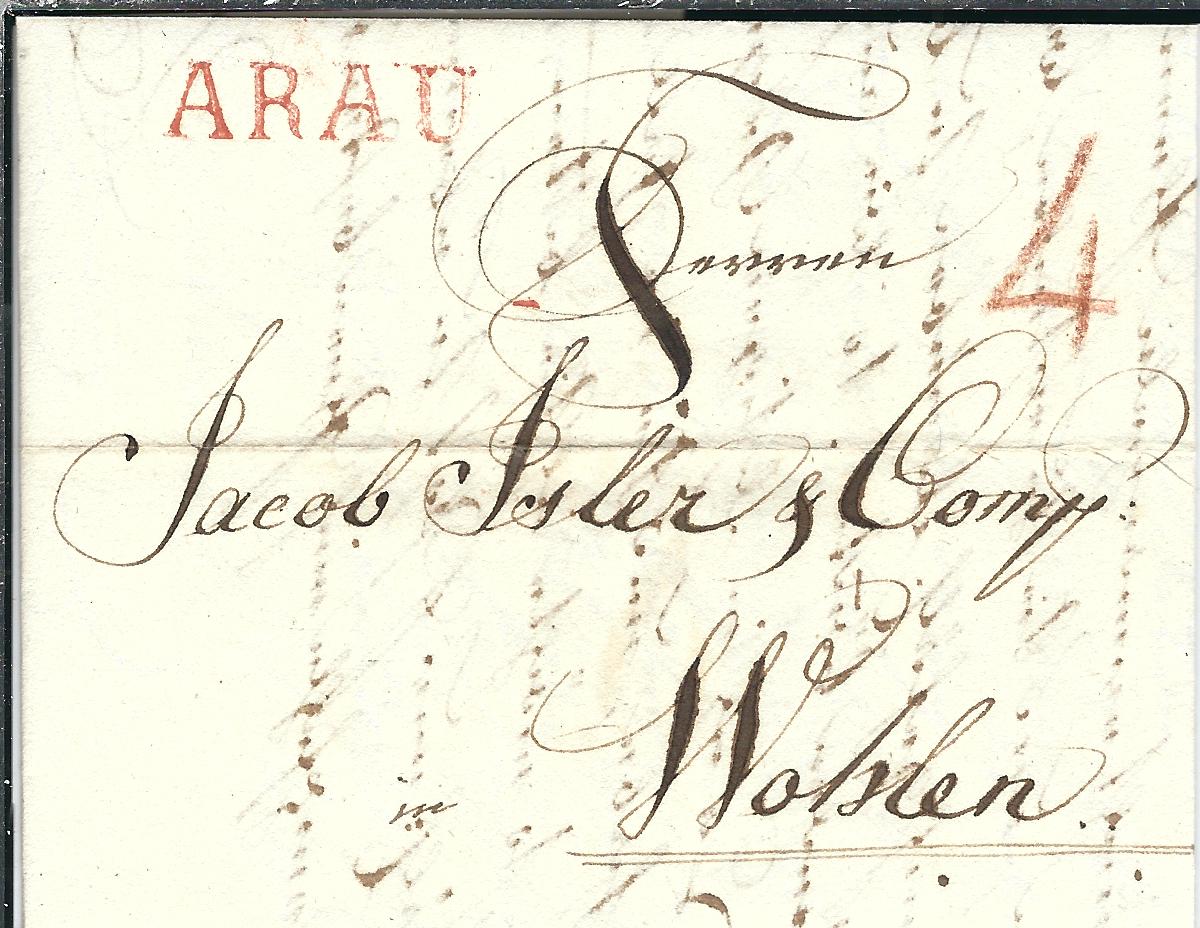 ARAU
Herren
4
Jacob Isler & Comp:
in Wohlen.